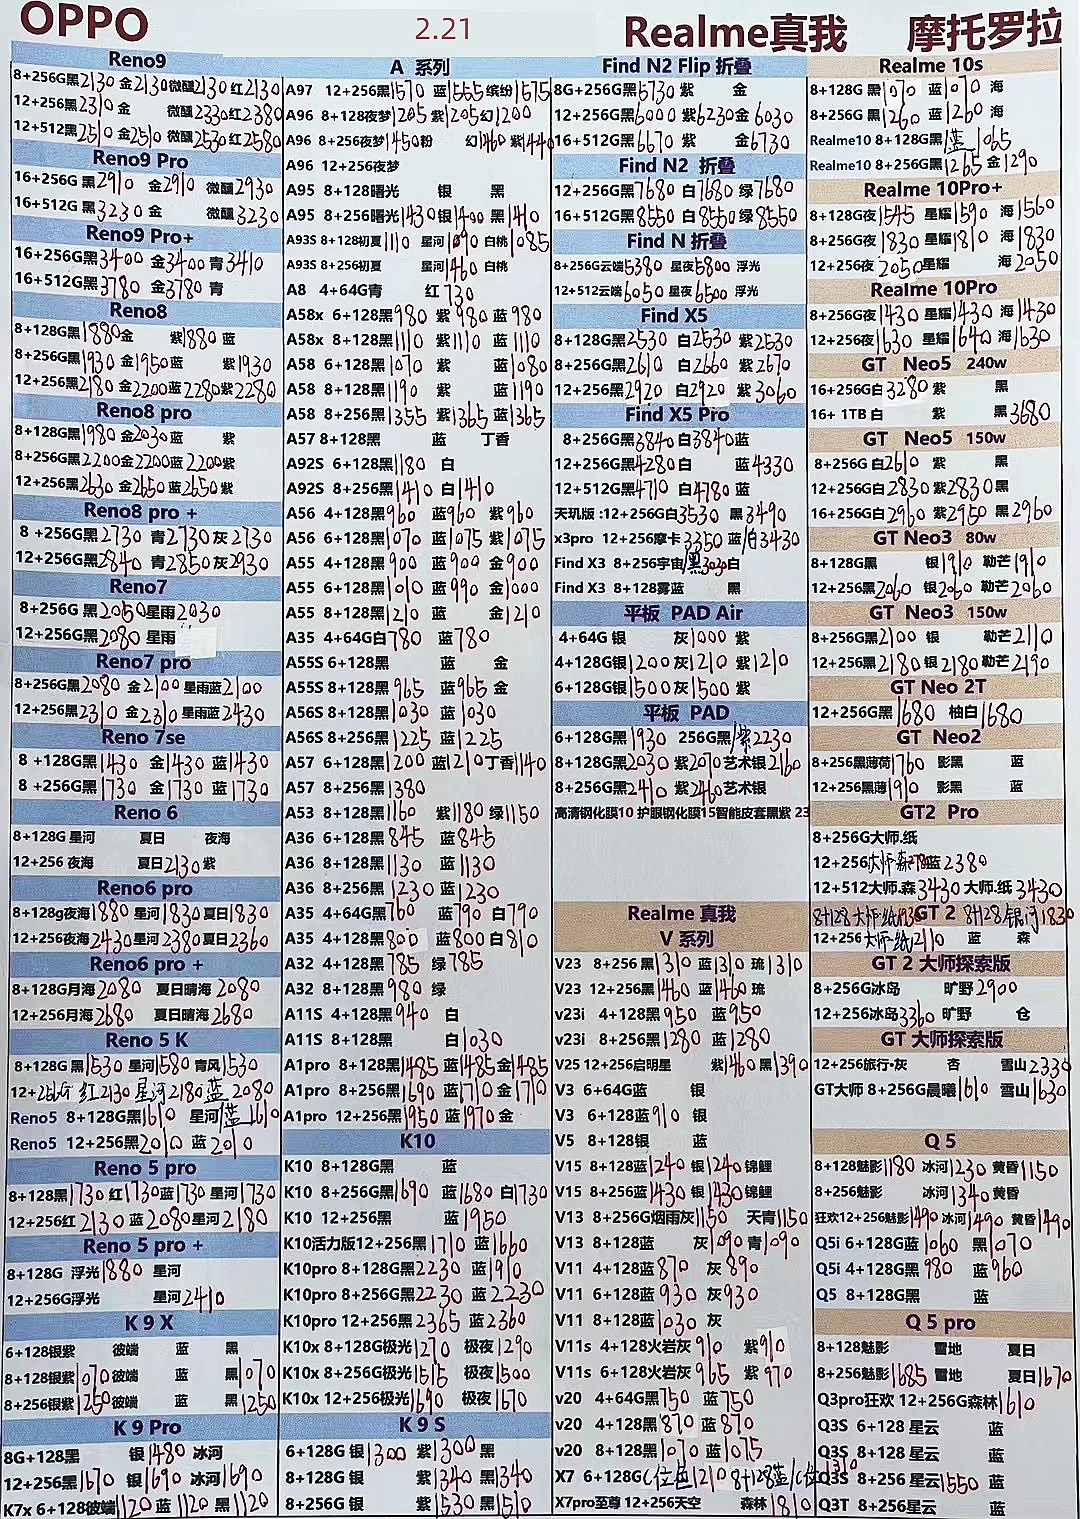 OPPO 2.21 Realme真我 摩托罗拉
Reno9
8+256G黑2130 金2130微醺2130红2130
12+256黑2310 金 微醺2330红2380
12+512黑2510金2510微醺2530红2580
Reno9 Pro
16+256G 黑2910 金2910 微醺2930
16+512G 黑3230金 微醺3230
Reno9 Pro+
16+256G黑3400 金3400青3410
16+512G黑3780 金3780青
Reno8
8+128G黑1880金 紫1880蓝
8+256G黑1930 金1950蓝 紫1930
12+256黑2180 金2200蓝2280紫2280
Reno8 pro
8+128G黑1980金2030蓝 紫
8+256G黑2200金2200蓝2200紫
12+256黑2630 金2650蓝2650紫
Reno8 pro +
8 +256G黑2730 青2730灰2730
12+256G黑2840 青2850灰2930
Reno7
8+256G 黑2050星雨2030
12+256G黑2080 星雨
Reno7 pro
8+256G黑2080 金2100星雨蓝2100
12+256黑2310 金2310星雨蓝2430
Reno 7se
8 +128G黑1430 金1430 蓝1430
8 +256G黑1730 金1730 蓝1730
Reno 6
8+128G 星河 夏日 夜海
12+256 夜海 夏日2130紫
Reno6 pro
8+128g夜海1880 星河1830夏日1830
12+256夜海2430星河2380夏日2360
Reno6 pro +
8+128G月海2080 夏日晴海2080
12+256月海2680 夏日晴海2680
Reno 5 K
8+128G 黑1530 星河1580青风1530
12+256G 红2130 星河2180蓝 2080
Reno5 8+128G黑1610 星河/蓝1610
Reno5 12+256黑2010 蓝2010
Reno 5 pro
8+128黑1730红1730蓝1730星河1730
12+256红2130蓝2080星河2180
Reno 5 pro +
8+128G 浮光1880 星河
12+256G浮光 星河2410
K 9 X
6+128银紫 彼端 蓝 黑
8+128银紫1070彼端 蓝 黑1070
8+256银紫1250彼端 蓝 黑1250
K 9 Pro
8G+128黑 银1480冰河
12+256黑1670 银1690冰河1690
K7x 6+128彼端1120蓝1120黑1120
A 系列
A97 12+256黑1570 蓝1565缤纷1575
A96 8+128夜梦1205 紫1205幻1200
A96 8+256夜梦1450粉 幻1460紫1440
A96 12+256夜梦
A95 8+128曙光 银 黑
A95 8+256曙光1430银1400黑1410
A93S 8+128初夏1110 星河1090白桃1085
A93S 8+256初夏 星河1460白桃
A8 4+64G青 红730
A58x 6+128黑980 紫980 蓝980
A58x 8+128黑1110 紫1110 蓝1110
A58 6+128黑1070 紫 蓝1080
A58 8+128黑1190 紫 蓝1190
A58 8+256黑1355 紫1365 蓝1365
A57 8+128黑 蓝 丁香
A92S 6+128黑1180 白
A92S 8+256黑1410 白1410
A56 4+128黑960 蓝960 紫960
A56 6+128黑1070 蓝1075 紫1075
A55 4+128黑900 蓝900 金900
A55 6+128黑1010 蓝990 金1000
A55 8+128黑1210 蓝 金1210
A35 4+64G白780 蓝780
A55S 6+128黑 蓝 金
A55S 8+128黑965 蓝965金
A56S 8+128黑1030 蓝1030
A56S 8+256黑1225 蓝1225
A57 6+128黑1200 蓝1210丁香1140
A57 8+256黑1380
A53 8+128黑1160 紫1180绿1150
A36 6+128黑845 蓝845
A36 8+128黑1130 蓝1130
A36 8+256黑1230蓝1230
A35 4+64G黑760 蓝790白790
A35 4+128黑800 蓝800白810
A32 4+128黑785 绿785
A32 8+128黑980 绿
A11S 4+128黑940 白
A11S 8+128黑 白1030
A1pro 8+128黑1485蓝1485金1485
A1pro 8+256黑1690蓝1710金1710
A1pro 12+256黑1950蓝1970金
K10
K10 8+128G黑 蓝
K10 8+256G黑1690 蓝1680白1730
K10 12+256黑 蓝1950
K10活力版12+256黑1710 蓝1660
K10pro 8+128G黑2230 蓝1910
K10pro 8+256G黑2230 蓝2230
K10pro 12+256黑2365 蓝2360
K10x 8+128G极光1270 极夜1290
K10x 8+256G极光1515 极夜1500
K10x 12+256极光1690 极夜1670
K 9 S
6+128G 银1300 紫1300黑
8+128G 银 紫1340黑1340
8+256G 银 紫1530黑1510
Find N2 Flip 折叠
8G+256G黑5730 紫 金
12+256G黑6000 紫6230金6030
16+512G黑6670 紫 金6730
Find N2 折叠
12+256G黑7680 白7680绿7680
16+512G黑8550 白8550绿8550
Find N 折叠
8+256G云端5380 星夜5800 浮光
12+512云端6050 星夜6500 浮光
Find X5
8+128G黑2530 白2530紫2530
8+256G黑2610 白2660紫2670
12+256黑2920 白2920紫3060
Find X5 Pro
8+256G黑3840白3840蓝
12+256G黑4280白 蓝4330
12+512G黑4710 白4780蓝
天玑版:12+256G白3530 黑3490
x3pro 12+256摩卡3350 蓝/白3430
Find X3 8+256宇宙/黑3030白
Find X3 8+128雾蓝 黑
平板 PAD Air
4+64G 银 灰1000 紫
4+128G银1200灰1210 紫1210
6+128G银1500灰1500 紫
平板 PAD
6+128G黑1930 256G黑/紫2230
8+128G黑2030 紫2070艺术银2160
8+256G黑2410 紫2460艺术银
高清钢化膜10 护眼钢化膜15智能皮套黑紫 23
Realme 真我
V 系列
V23 8+256 黑1310 蓝1310琉1310
V23 12+256黑1460 蓝1460琉
v23i 4+128黑950 蓝950
v23i 8+256黑1280 蓝1280
V25 12+256启明星 紫1460黑1390
V3 6+64G蓝 银
V3 6+128蓝910 银
V5 8+128银 蓝
V15 8+128蓝1240 银1240锦鲤
V15 8+256蓝1430 银1430锦鲤
V13 8+256G烟雨灰1150 天青1150
V13 8+128蓝 灰1090青1090
V11 4+128蓝870 灰890
V11 6+128蓝930 灰930
V11 8+128蓝1030 灰
V11s 4+128火岩灰910 紫910
V11s 6+128火岩灰965 紫970
v20 4+64G黑750 蓝750
v20 4+128黑870 蓝870
v20 8+128黑1070 蓝1075
X7 6+128G C位色1210 8+128蓝/C位1310
X7pro至尊 12+256天空 森林1810
Realme 10s
8+128G 黑1070 蓝1070 海
8+256G 黑1260 蓝1260 海
Realme10 8+128G黑/蓝1065
Realme10 8+256G黑1265 金1290
Realme 10Pro+
8+128G夜1545 星耀1590 海1560
8+256G夜1830 星耀1810 海1830
12+256夜2050星耀 海2050
Realme 10Pro
8+256G夜1430 星耀1430海1430
12+256夜1630 星耀1640海1630
GT Neo5 240w
16+256G白3280紫 黑
16+ 1TB 白 紫 黑3680
GT Neo5 150w
8+256G 白2610 紫 黑
12+256G白2830紫2830黑
16+256G白2960紫2950黑2960
GT Neo3 80w
8+128G黑 银1910 勒芒1910
12+256黑2060 银2060勒芒2060
GT Neo3 150w
8+256G黑2100 银 勒芒2110
12+256黑2180银2180勒芒2190
GT Neo 2T
12+256G黑1680 柚白1680
GT Neo2
8+256黑薄荷1760 影黑 蓝
12+256黑薄1910 影黑 蓝
GT2 Pro
8+256G大师.纸
12+256大师·森2780蓝2380
12+512大师.森3430大师.纸3430
8+128大师·纸1930 GT 2 8+128银河1830
12+256大师-纸2110 蓝 森
GT 2 大师探索版
8+256G冰岛 旷野2900
12+256冰岛3360旷野 仓
GT 大师探索版
12+256旅行•灰 杏 雪山2330
GT大师 8+256G晨曦1610 雪山1630
Q 5
8+128魅影1180 冰河1230黄昏1150
8+256魅影 冰河1340黄昏
狂欢12+256魅影1490冰河1490 黄昏1490
Q5i 6+128G蓝1060 黑1070
Q5i 4+128G黑980 蓝960
Q5 8+128G黑 蓝
Q 5 pro
8+128魅影 雪地 夏日
8+256魅影1685雪地 夏日1670
Q3pro狂欢 12+256G森林1610
Q3S 6+128 星云 蓝
Q3S 8+128 星云 蓝
Q3S 8+256 星云1550 蓝
Q3T 8+256星云 蓝